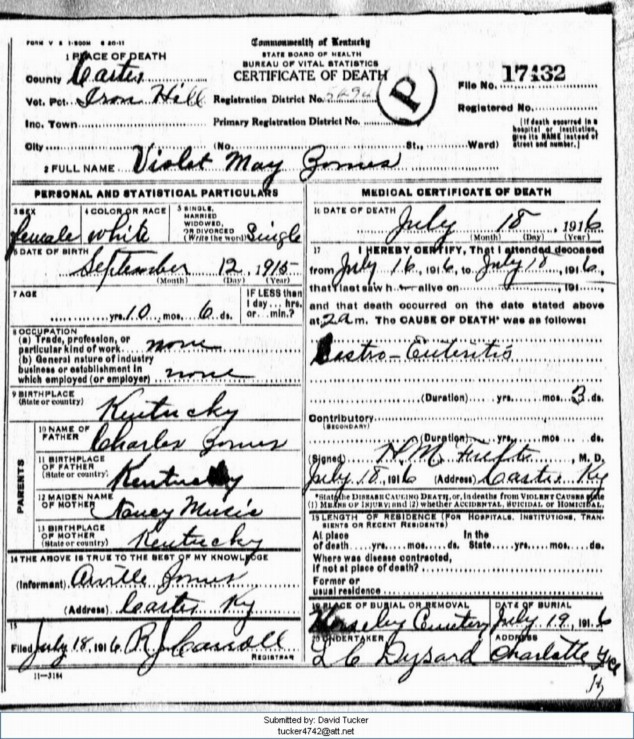 FORM V S 1-500M 6 20-11
Commonwealth of Kentucky
STATE BOARD OF HEALTH
BUREAU OF VITAL STATISTICS
CERTIFICATE OF DEATH
1 PLACE OF DEATH
County Carter
File No. 17432
Vot. Pct. Iron Hill Registration District No.
P
Registered No.
Inc. Town Primary Registration District No.
(If death occurred in a hospital or institution, give its NAME instead of street and number.)
City (No. St., Ward)
2 FULL NAME Violet May
PERSONAL AND STATISTICAL PARTICULARS
3 SEX 4 COLOR OR RACE 5 SINGLE, MARRIED WIDOWED, OR DIVORCED (Write the word)
female white Single
6 DATE OF BIRTH
September 12, 1915
(Month) (Day) (Year)
7 AGE
yrs. 10 mos. 6 ds.
IF LESS than 1 day...hrs. or...min.?
8 OCCUPATION
(a) Trade, profession, or particular kind of work none
(b) General nature of industry business or establishment in which employed (or employer) none
9 BIRTHPLACE
(State or country) Kentucky
PARENTS
10 NAME OF FATHER Charles
11 BIRTHPLACE OF FATHER (State or country) Kentucky
12 MAIDEN NAME OF MOTHER Nancy Music
13 BIRTHPLACE OF MOTHER (State or country) Kentucky
14 THE ABOVE IS TRUE TO THE BEST OF MY KNOWLEDGE
(Informant)
(Address) Carter Ky
15
Filed July 18, 1916 R J Carroll
REGISTRAR
11—3184
MEDICAL CERTIFICATE OF DEATH
16 DATE OF DEATH
July 18, 1916
(Month) (Day) (Year)
17 I HEREBY CERTIFY, That I attended deceased
from July 16, 1916, to July 18, 1916,
that I last saw h alive on , 191
and that death occurred on the date stated above
at 2 a m. The CAUSE OF DEATH* was as follows:
Gastro-Enteritis
(Duration) yrs. mos. 3 ds.
Contributory
(SECONDARY)
(Duration) yrs. mos. ds.
(Signed) H. M. , M. D.
July 18, 1916 (Address) Carter Ky
*State the DISEASE CAUSING DEATH, or, in deaths from VIOLENT CAUSES state
(1) MEANS OF INJURY; and (2) whether ACCIDENTAL, SUICIDAL or HOMICIDAL.
18 LENGTH OF RESIDENCE (FOR HOSPITALS, INSTITUTIONS, TRANSIENTS OR RECENT RESIDENTS)
At place of death yrs. mos. ds. In the State yrs. mos. ds.
Where was disease contracted, if not at place of death?
Former or usual residence
19 PLACE OF BURIAL OR REMOVAL DATE OF BURIAL
Cemetery July 19, 1916
20 UNDERTAKER ADDRESS
L C Dysard Charlotte
Submitted by: David Tucker
tucker4742@att.net